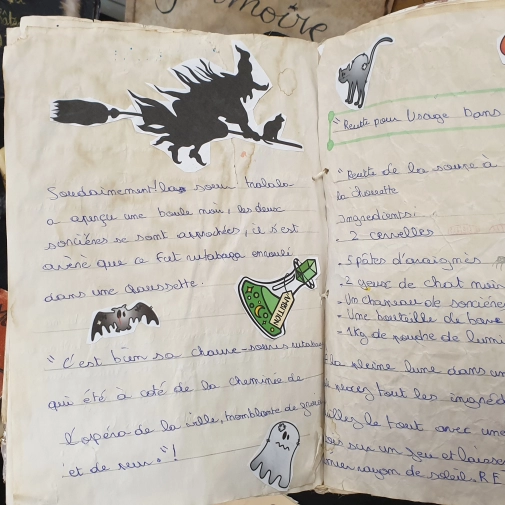 Grimoire
Soudainement! la soeur halala
a aperçu une boule noir, les deux
sorcières se sont approchées, il s'est
avéré que ce fut rutabaga enroulé
dans une chaussette.
"C'est bien sa chauve-souris rutabaga
qui été à coté de la cheminée de
l'opéra de la ville, tremblante de
et de peur."!
"Recette pour Usage Dans
"Recette de la soupe à
la Chouette
Ingrédients:
- 2 cervelles
- 5 pâtes d'araignés
- 2 yeux de chat noir
- Un chapeau de sorcière
- Une bouteille de bave
- 1kg de poudre de lumi
la pleine lune dans un
tout les ingréd
le tout avec une
sur un feu et laisse
rayon de soleil. R E